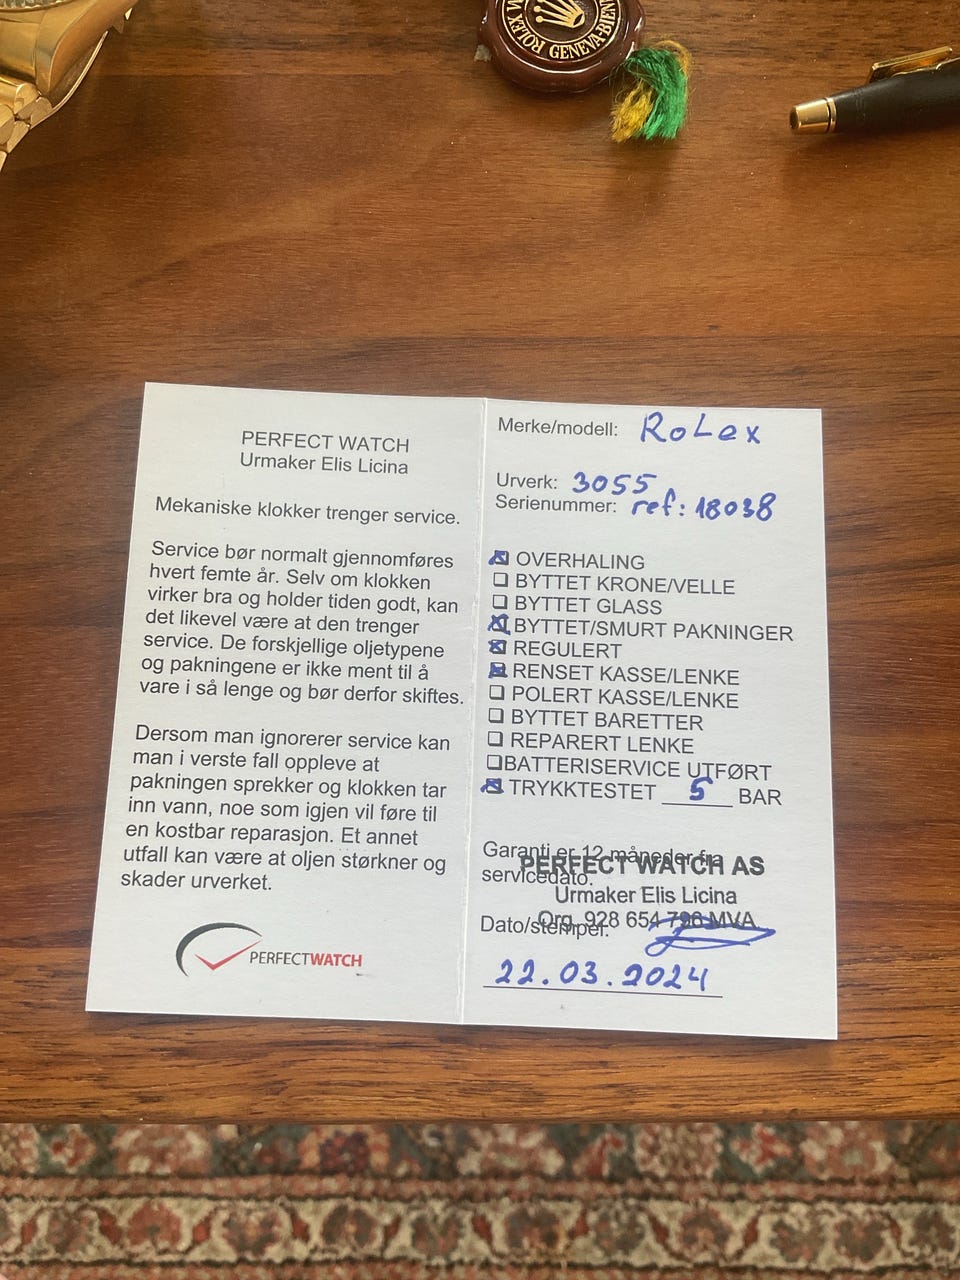 M ROLEX GENEVA-BIEN
PERFECT WATCH
Urmaker Elis Licina
Mekaniske klokker trenger service.
Service bør normalt gjennomføres
hvert femte år. Selv om klokken
virker bra og holder tiden godt, kan
det likevel være at den trenger
service. De forskjellige oljetypene
og pakningene er ikke ment til å
vare i så lenge og bør derfor skiftes.
Dersom man ignorerer service kan
man i verste fall oppleve at
pakningen sprekker og klokken tar
inn vann, noe som igjen vil føre til
en kostbar reparasjon. Et annet
utfall kan være at oljen størkner og
skader urverket.
PERFECTWATCH
Merke/modell: RoLex
Urverk: 3055
Serienummer: ref: 18038
OVERHALING
BYTTET KRONE/VELLE
BYTTET GLASS
BYTTET/SMURT PAKNINGER
REGULERT
RENSET KASSE/LENKE
POLERT KASSE/LENKE
BYTTET BARETTER
REPARERT LENKE
BATTERISERVICE UTFØRT
TRYKKTESTET 5 BAR
Garanti er 12 måneder fra
servicedato.
PERFECT WATCH AS
Urmaker Elis Licina
Org. 928 654 796 MVA
Dato/stempel:
22.03.2024